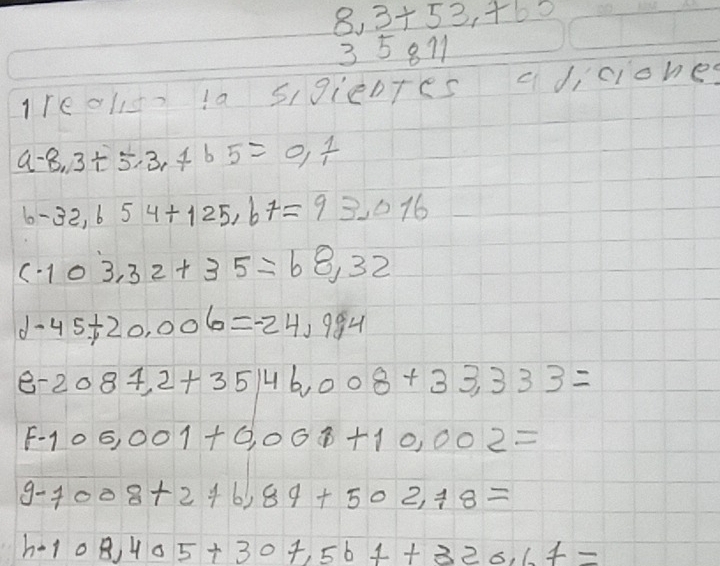 8,3+53,765
3 5 811
1 realisa la sigientes adiciones
a-8,3+53,765=0,7
b-32,654+125,67=93,016
c-103,32+35=68,32
d-45+20,006=-24,994
e-2087,2+35146,008+33,333=
F-106,001+0,001+10,002=
g-7008+276,89+502,78=
h-108,405+307,567+320,67=